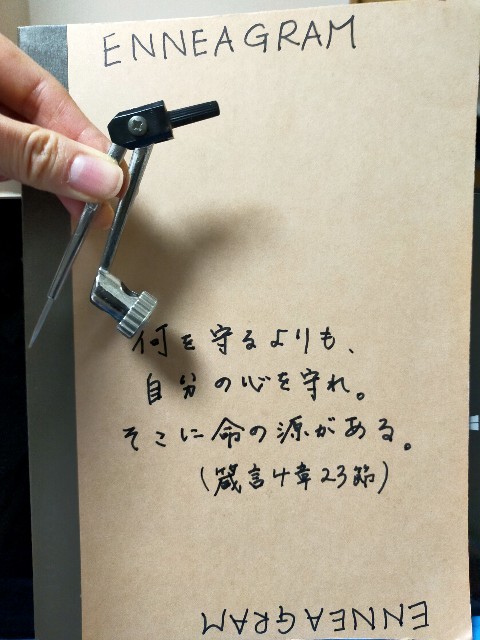 ENNEAGRAM
何を守るよりも、
自分の心を守れ。
そこに命の源がある。
(箴言4章23節)
ENNEAGRAM